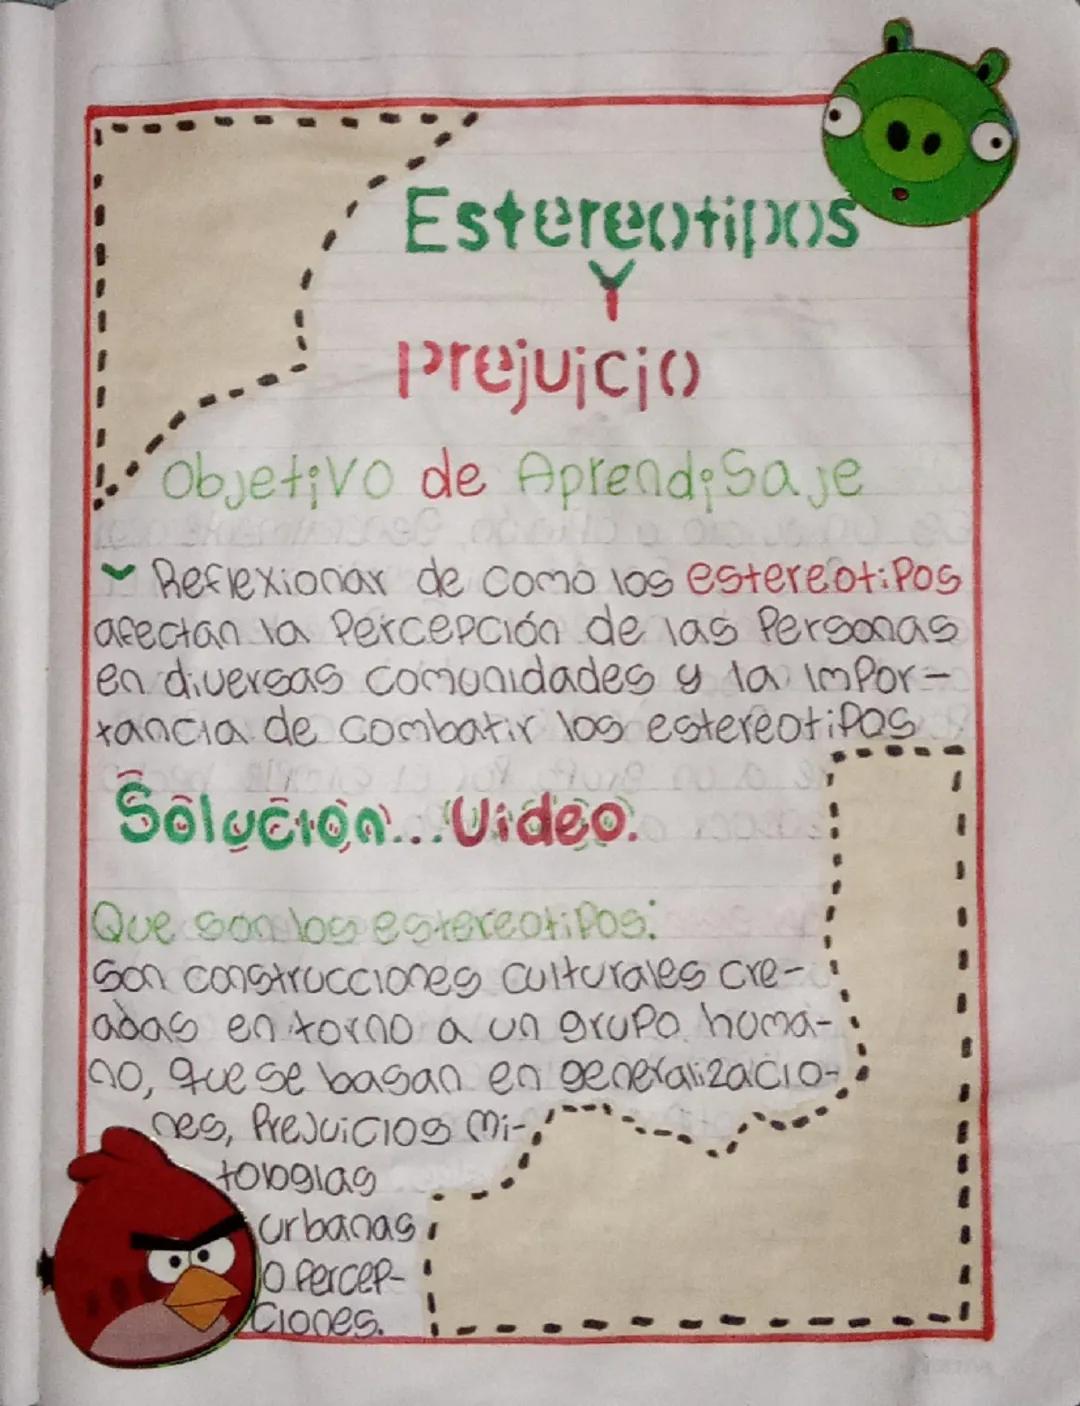 Estereotipos
Y
Prejuicio
Objetivo de Aprendisaje
Reflexionar de como los estereotipos
afectan la Percepción de las Personas
en diversas comunidades y la impor-
tancia de combatir los estereotipos
Solución... Video.
Que son los estereotipos:
Son construcciones culturales cre-
adas en torno a un grupo huma-
no, que se basan en generalizacio-
nes, Prejuicios mi-
tologias
urbanas
o Percep-
ciones.